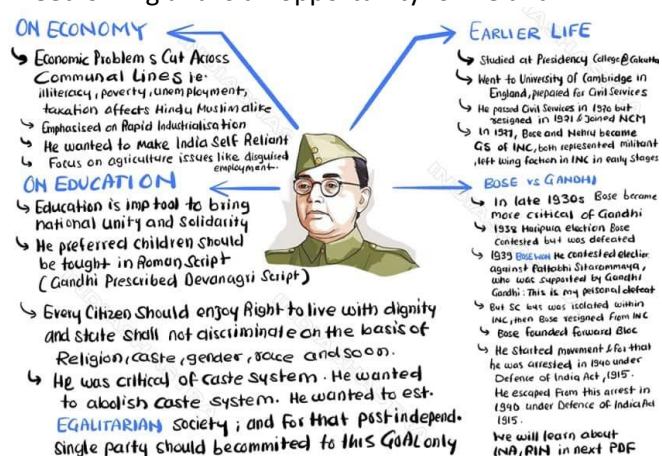 ON ECONOMY
↳ Economic Problems Cut Across
Communal Lines ie.
illiteracy, poverty, unemployment,
taxation affects Hindu Muslim alike
↳ Emphasised on Rapid Industrialisation
↳ He wanted to Make India Self Reliant
↳ Focus on agriculture issues like disguised
employment.
ON EDUCATION
↳ Education is imp tool to bring
national unity and Solidarity
↳ He preferred children Should
be tought in Roman Script
(Gandhi Prescribed Devanagri Script)
↳ Every Citizen Should enjoy Right to live with dignity
and state Shall not discriminate on the basis of
Religion, caste, gender, race and so on.
↳ He was critical of caste system. He wanted
to abolish caste system. He wanted to est.
EGALITARIAN Society; and for that post independ.
Single party should be committed to this GOAL only
EARLIER LIFE
↳ Studied at Presidency College @ Calcutta
↳ Went to University of Cambridge in
England, prepared for Civil Services
↳ He passed Civil Services in 1920 but
resigned in 1921 & Joined NCM
↳ In 1927, Bose and Nehru became
GS of INC, both represented militant
, left wing faction in INC in early stages
BOSE VS GANDHI
↳ In late 1930s Bose became
more critical of Gandhi
↳ 1938 Haripura election Bose
Contested but was defeated
↳ 1939 BOSE WON He contested election
against Pattabhi Sitarammaya,
who was supported by Gandhi
Gandhi: This is my personal defeat
↳ But SC bus was isolated within
INC, then Bose resigned from INC
↳ Bose founded Forward Bloc
↳ He Started movement & for that
he was arrested in 1940 under
Defence of India Act, 1915.
He escaped from this arrest in
1940 under Defence of India Act
1915.
We will learn about
INA, RIN in next PDF